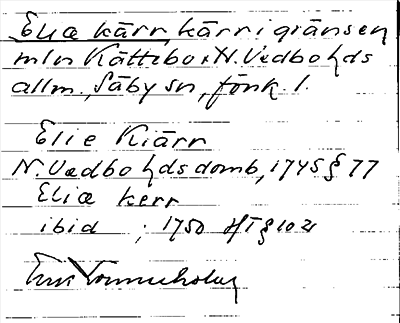 Eliæ kärr, kärr i gränsen
mln Kättebo o N. Vedbo hds
allm., Säby sn, fönk. 1.
Elie Kiärr
N. Vedbo hds domb, 1745 § 77
Eliæ kerr
ibid ; 1750 HT § 102